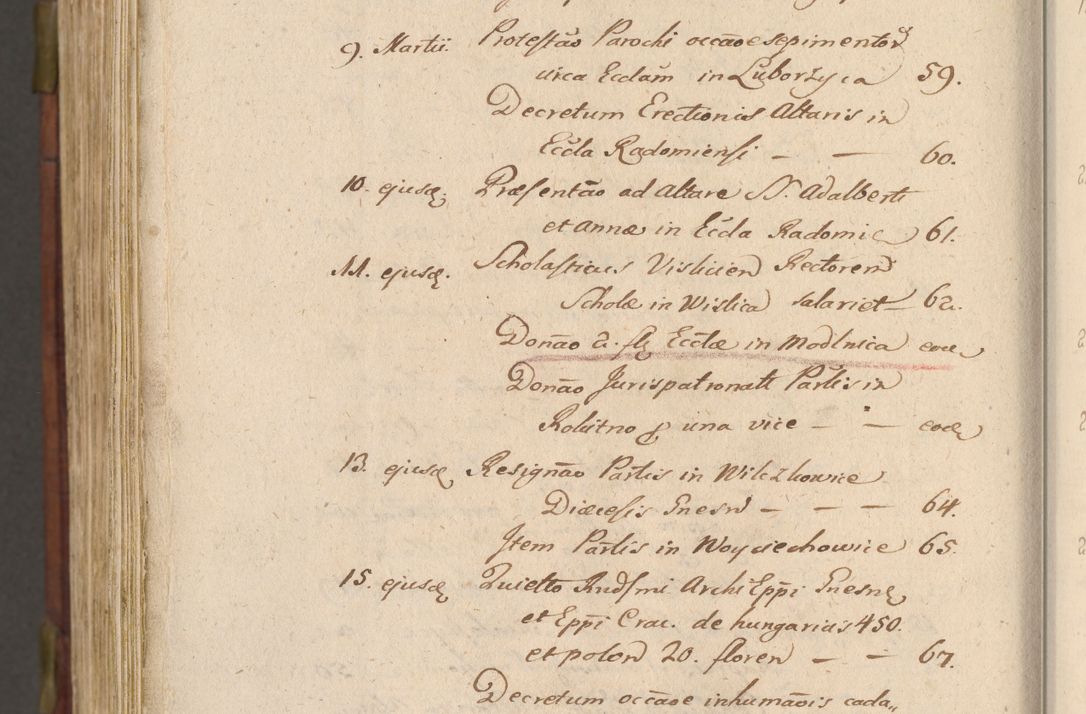 9. Martii. Protestão Parochi occãoe sepimentor
circa Ecclãm in Luborzyca 59.
Decretum Erectionis Altaris in
Eccla Radomiensi – — 60.
10. ejusq; Præsentão ad Altare S. Adalberti
et Annæ in Eccla Radomie 61.
11. ejusq. Scholasticus Vislicien Rectorem
Scholæ in Wislica salariet 62.
Donão in Modlnica eod
Donão Jurispatronat Partis in
Rokitno p una vice – – eod
13. ejusq Resignão Partis in Wilczkowice
Diæcesis Gnesn – – – 64.
Item Partis in Woyciechowice 65.
15. ejusq Quietto Rndsmi Archi Eppi Gnesn
et Eppi Crac. de hungarias 450.
et polon 20. floren – – 67.
Decretum occãoe inhumãois cada„